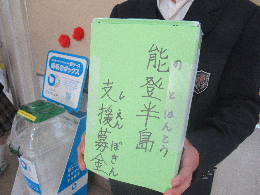 能登半島
のとはんとう
支援募金
しえんぼきん